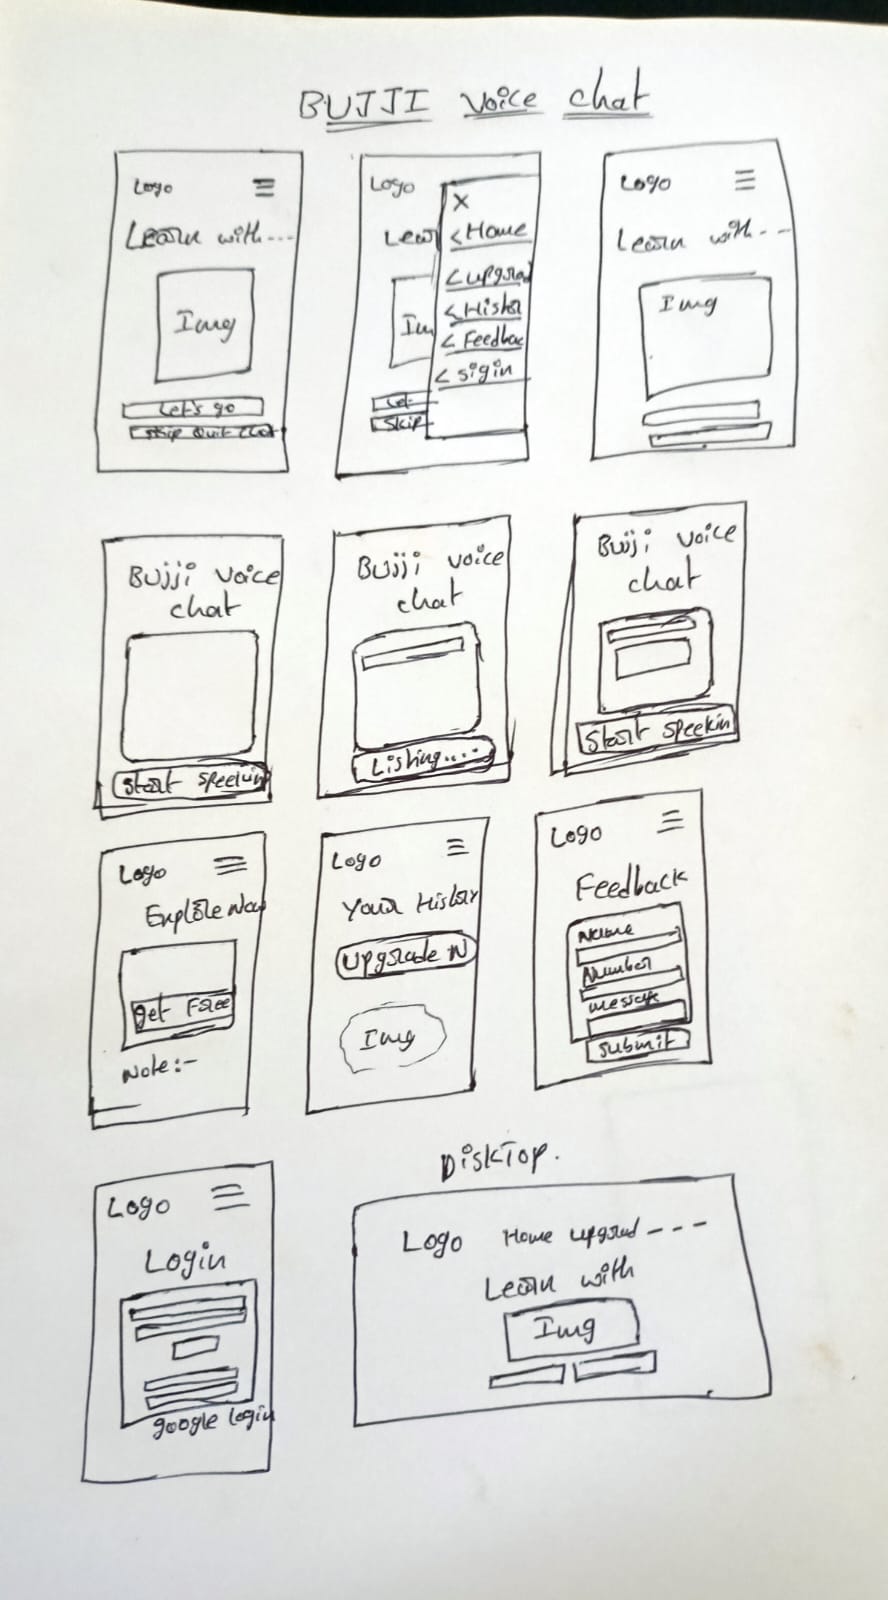 BUJJI Voice chat
Logo
Learn with---
Img
Let's go
Skip Quit Chat
Logo
Lear
Im
Let
Skip
X
<Home
<upgrad
<Histor
<Feedbac
<sigin
Logo
Learn with--
Img
Bujji voice
chat
Start Speekin
Bujji voice
chat
Listing....
Bujji voice
chat
Start Speekin
Logo
Explore Now
get Free
Note:-
Logo
Your History
Upgrade N
Img
Logo
Feedback
Name
Number
message
Submit
Logo
Login
google login
DiskTop.
Logo Home upgrad---
Learn with
Img